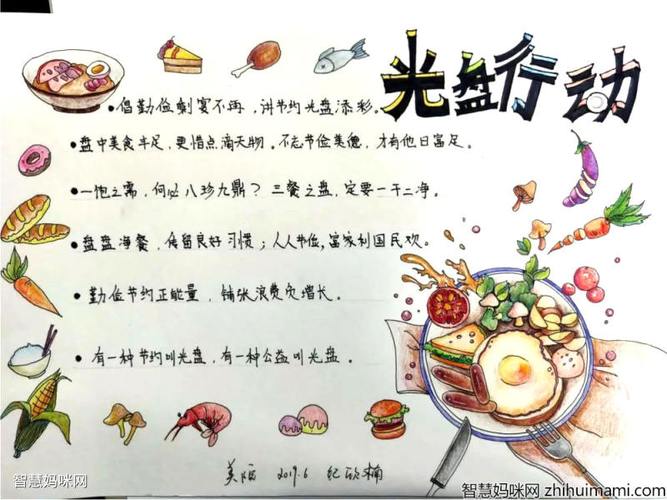 光盘行动
•倡勤俭剩宴不再,讲节约光盘添彩。
•盘中美食丰足,更惜点滴天物。不忘节俭美德,才有他日富足。
•一饱之需,何必八珍九鼎?三餐之盘,定要一干二净。
•盘盘净餐,保留良好习惯;人人节俭,富家利国民欢。
•勤俭节约正能量,铺张浪费灾增长。
•有一种节约叫光盘,有一种公益叫光盘。
2019.6 纪欣楠
智慧妈咪网
智慧妈咪网 zhihuimami.com